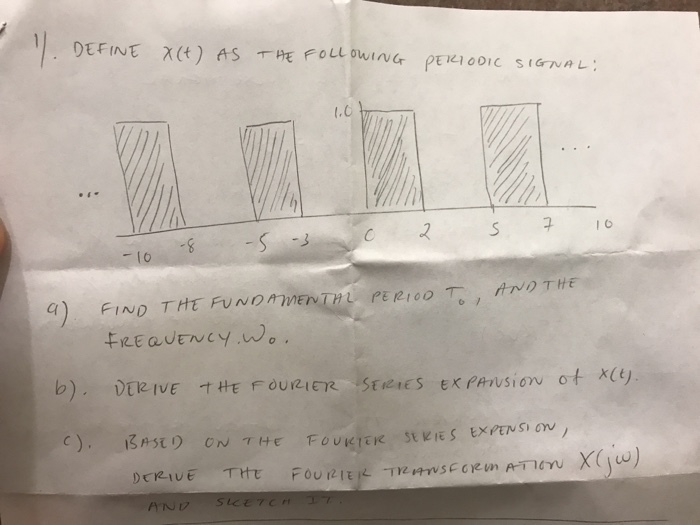 1/. DEFINE X(t) AS THE FOLLOWING PERIODIC SIGNAL:
1.0
... ...
-10 -8 -5 -3 0 2 5 7 10
a) FIND THE FUNDAMENTAL PERIOD T₀, AND THE
FREQUENCY. W₀.
b). DERIVE THE FOURIER SERIES EXPANSION of X(t).
c). BASED ON THE FOURIER SERIES EXPENSION,
DERIVE THE FOURIER TRANSFORMATION X(jω)
AND SKETCH IT.